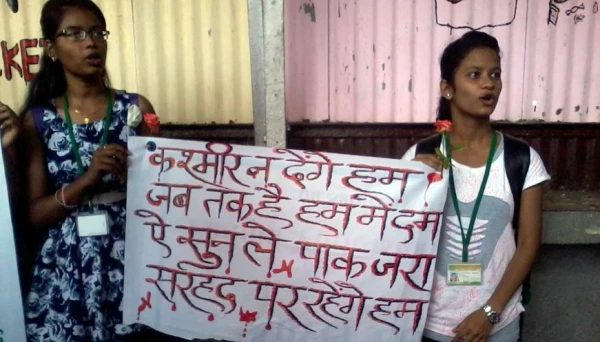 CKET
कश्मीर न देंगे हम
जब तक है हम में दम
ऐ सुन ले पाक जरा
सरहद पर रहेंगे हम